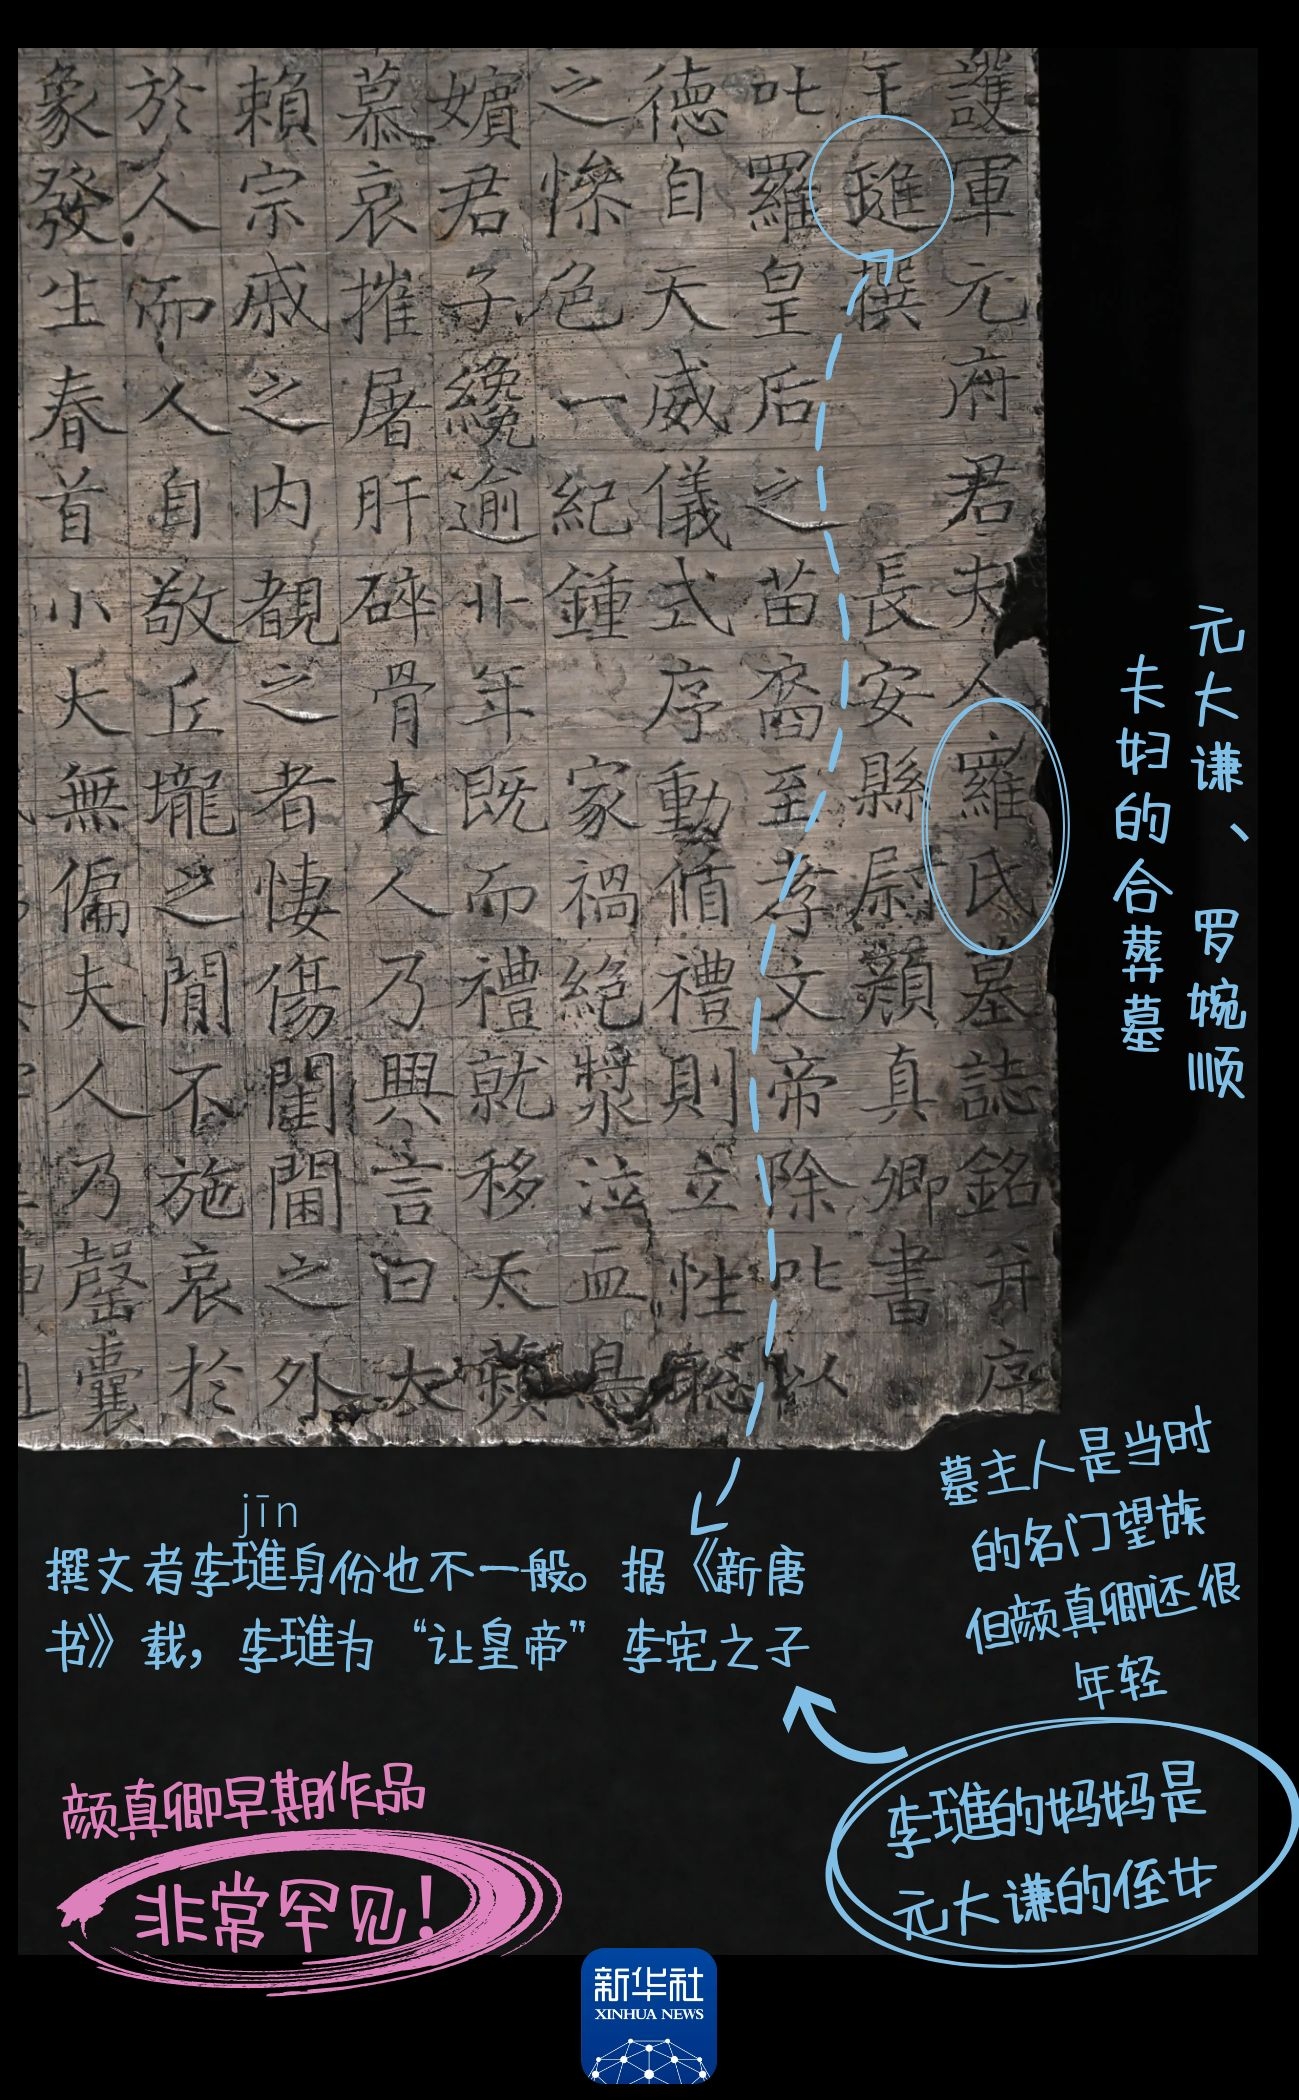 護軍元府君夫人羅氏墓誌銘并序
王璡撰 長安縣尉顏真卿書
叱羅皇后之苗裔至孝文帝除叱以
德自天威儀式序動循禮則立性聡
之慘色一紀鍾 家禍絕漿泣血鳥
嬪君子纔逾卄年既而禮就移天蘋
慕哀摧屠肝碎骨夫人乃興言曰大
賴宗戚之内覩之者悽傷閨閫之外
於人而人自敬丘壠之間不施哀於
象發生春首小大無偏夫人乃罄囊
元大谦、罗婉顺
夫妇的合葬墓
墓主人是当时
的名门望族
但颜真卿还很
年轻
jīn
撰文者李琎身份也不一般。据《新唐
书》载，李琎为“让皇帝”李宪之子
李琎的妈妈是
元大谦的侄女
颜真卿早期作品
非常罕见！
新华社
XINHUA NEWS